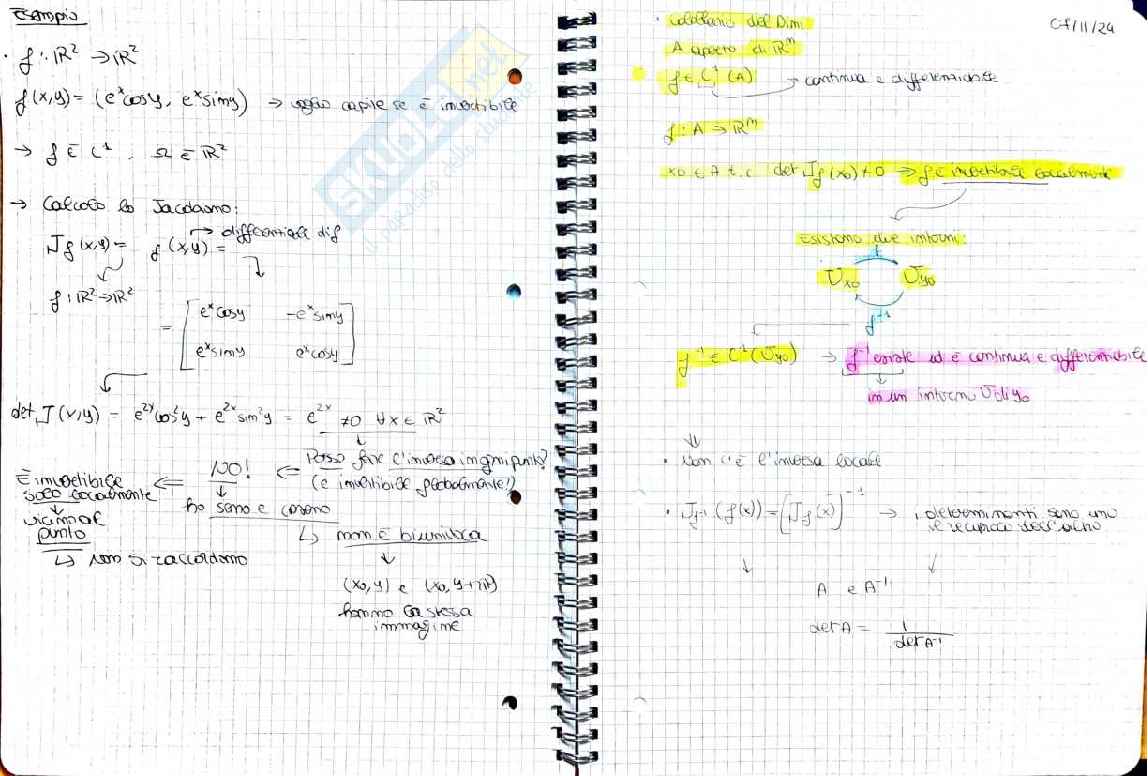 Esempio
· f: ℝ² → ℝ²
f(x,y) = (eˣcosy, eˣsiny) → voglio capire se è invertibile
→ f ∈ C¹ : Ω = ℝ²
→ Calcolo lo Jacobiano:
→ differenziale di f
Jf(x,y) = f(x,y) =
f: ℝ² → ℝ²
= [ eˣcosy -eˣsiny
eˣsiny eˣcosy ]
det J(x,y) = e²ˣcos²y + e²ˣsin²y = e²ˣ ≠0 ∀x ∈ ℝ²
Posso fare l'inversa in ogni punto?
(è invertibile globalmente!)
⇐ NO! ⇐
È invertibile
solo localmente
vicino al
punto
↳ non si raccordano
ho seno e coseno
↳ non è biunivoca
(x₀,y) e (x₀, y+π)
hanno la stessa
immagine
07/11/24
· Corollario del Dini
A aperto di ℝⁿ
f ∈ C¹(A) → continua e differenziabile
f: A → ℝⁿ
x₀ ∈ A t.c. det Jf(x₀) ≠ 0 ⇒ f è invertibile localmente
Esistono due intorni:
f
Ux₀ Uy₀
f⁻¹
f⁻¹ ∈ C¹(Uy₀) → f⁻¹ esiste ed è continua e differenziabile
in un intorno U di y₀
⇓
· Non c'è l'inversa locale
· Jf⁻¹(f(x)) = [Jf(x)]⁻¹ → i determinanti sono uno
il reciproco dell'altro
A e A⁻¹
det A = 1 / det A⁻¹
SKUOLA.net
il paradiso dello studente